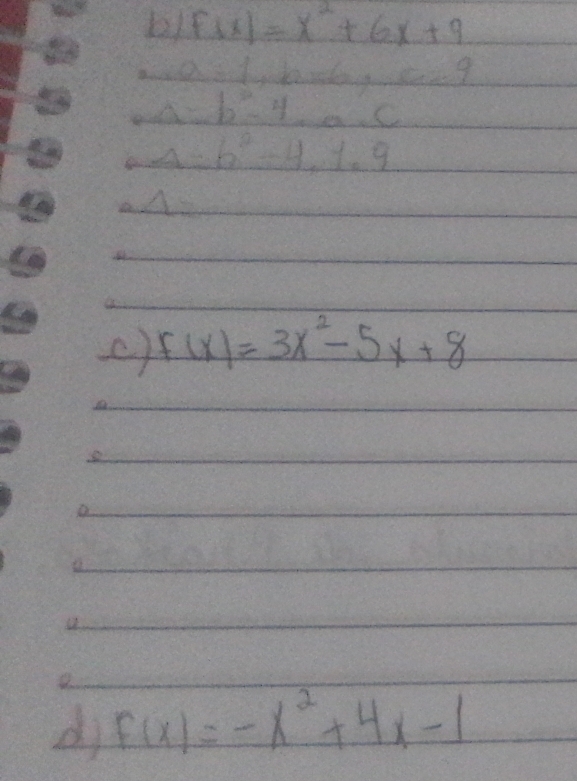 b) F(x) = x² + 6x + 9
a = 1, b = 6, c = 9
Δ = b² - 4.a.c
Δ = b² - 4.1.9
Δ =
c) F(x) = 3x² - 5x + 8
d) F(x) = -x² + 4x - 1